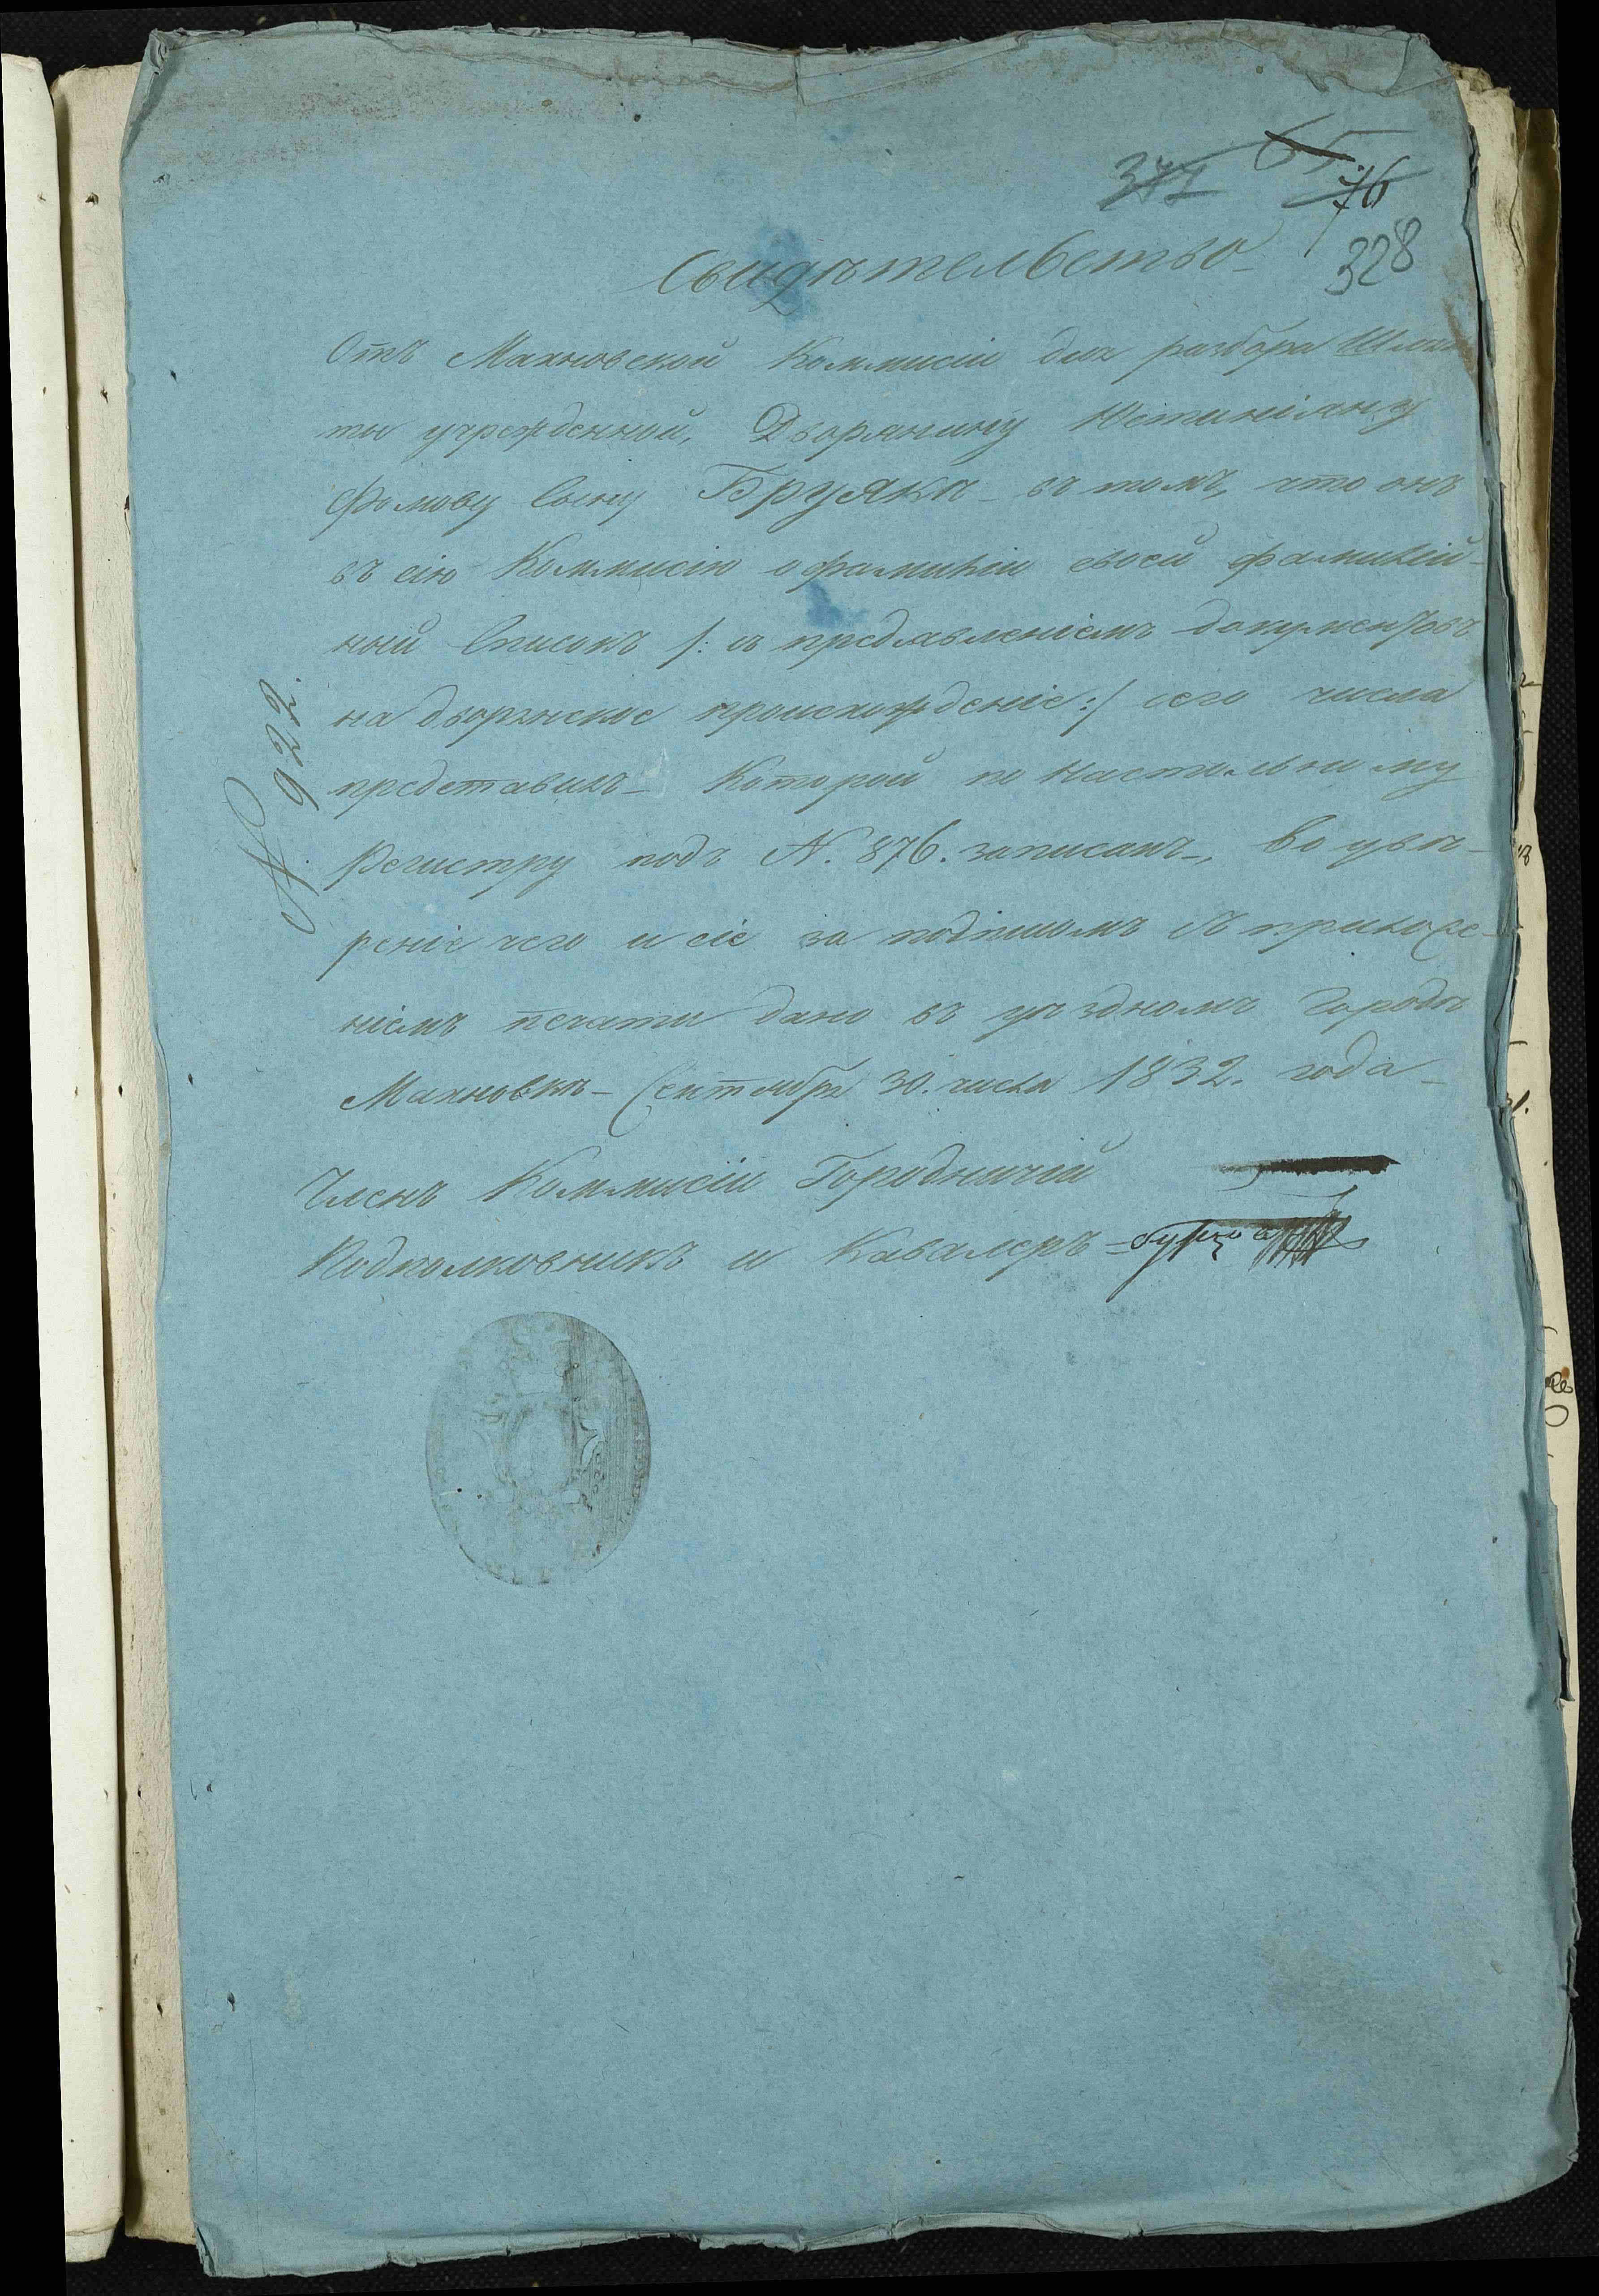 371 65
76
328
Свидѣтельство
Отъ Махновской Коммисіи для разбора Шлях
ты учрежденной, Дворянину Юстиніяну
Фомову Сыну Бруяка въ томъ, что онъ
въ сію Коммисію о фамиліи своей фамилій-
ный Списокъ /: съ предъявленіемъ документовъ
на дворянское происхожденіе :/ сего числа
представилъ Которой по Настольному
Регистру подъ N. 876. записанъ, Во увѣ-
реніе чего и сіе за подписомъ и приложе-
ніемъ печати дано въ уѣздномъ Городѣ
Махновкѣ Сентября 30. числа 1832. года
N. 922.
Членъ Коммисіи Городничій
Подполковникъ и Кавалеръ